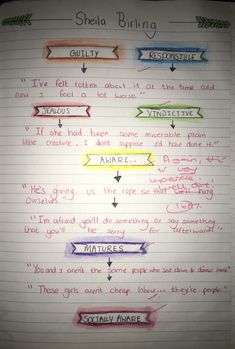 Sheila Birling
GUILTY
RESPONSIBLE
"I've felt rotten about it at the time and
now I feel a lot worse"
JEALOUS
VINDICTIVE
"If she had been some miserable plain
little creature, I don't suppose I'd have done it."
AWARE...
Again, this
is very
impressive
well done!
"He's giving us the rope so that we'll hang
Ourselves."
"I'm afraid you'll do something or say something
that you'll be sorry for afterwards"
MATURES
"You and I aren't the same people who sat down to dinner here"
"These girls aren't cheap labour... they're people."
SOCIALLY AWARE